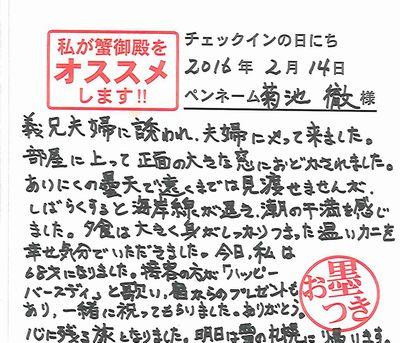 私が蟹御殿を
オススメ
します!!
チェックインの日にち
2016年 2月 14日
ペンネーム菊池 徹 様
義兄夫婦に誘われ、夫婦にやって来ました。
部屋に上って正面の大きな窓におどかされました。
あいにくの曇天で遠くまでは見渡せませんが、
しばらくすると海岸線が遠え、潮の干満を感じ
ました。夕食は大きく身がしっかりつまった温いカニを
幸せ気分でいただきました。今日、私は
68才になりました。接客の方が「ハッピー
バースディ」と歌い、宿からのプレゼントも
あり、一緒に祝ってもらいました。ありがとう。
心に残る旅となりました。明日は雪の札幌に帰ります。
お墨つき